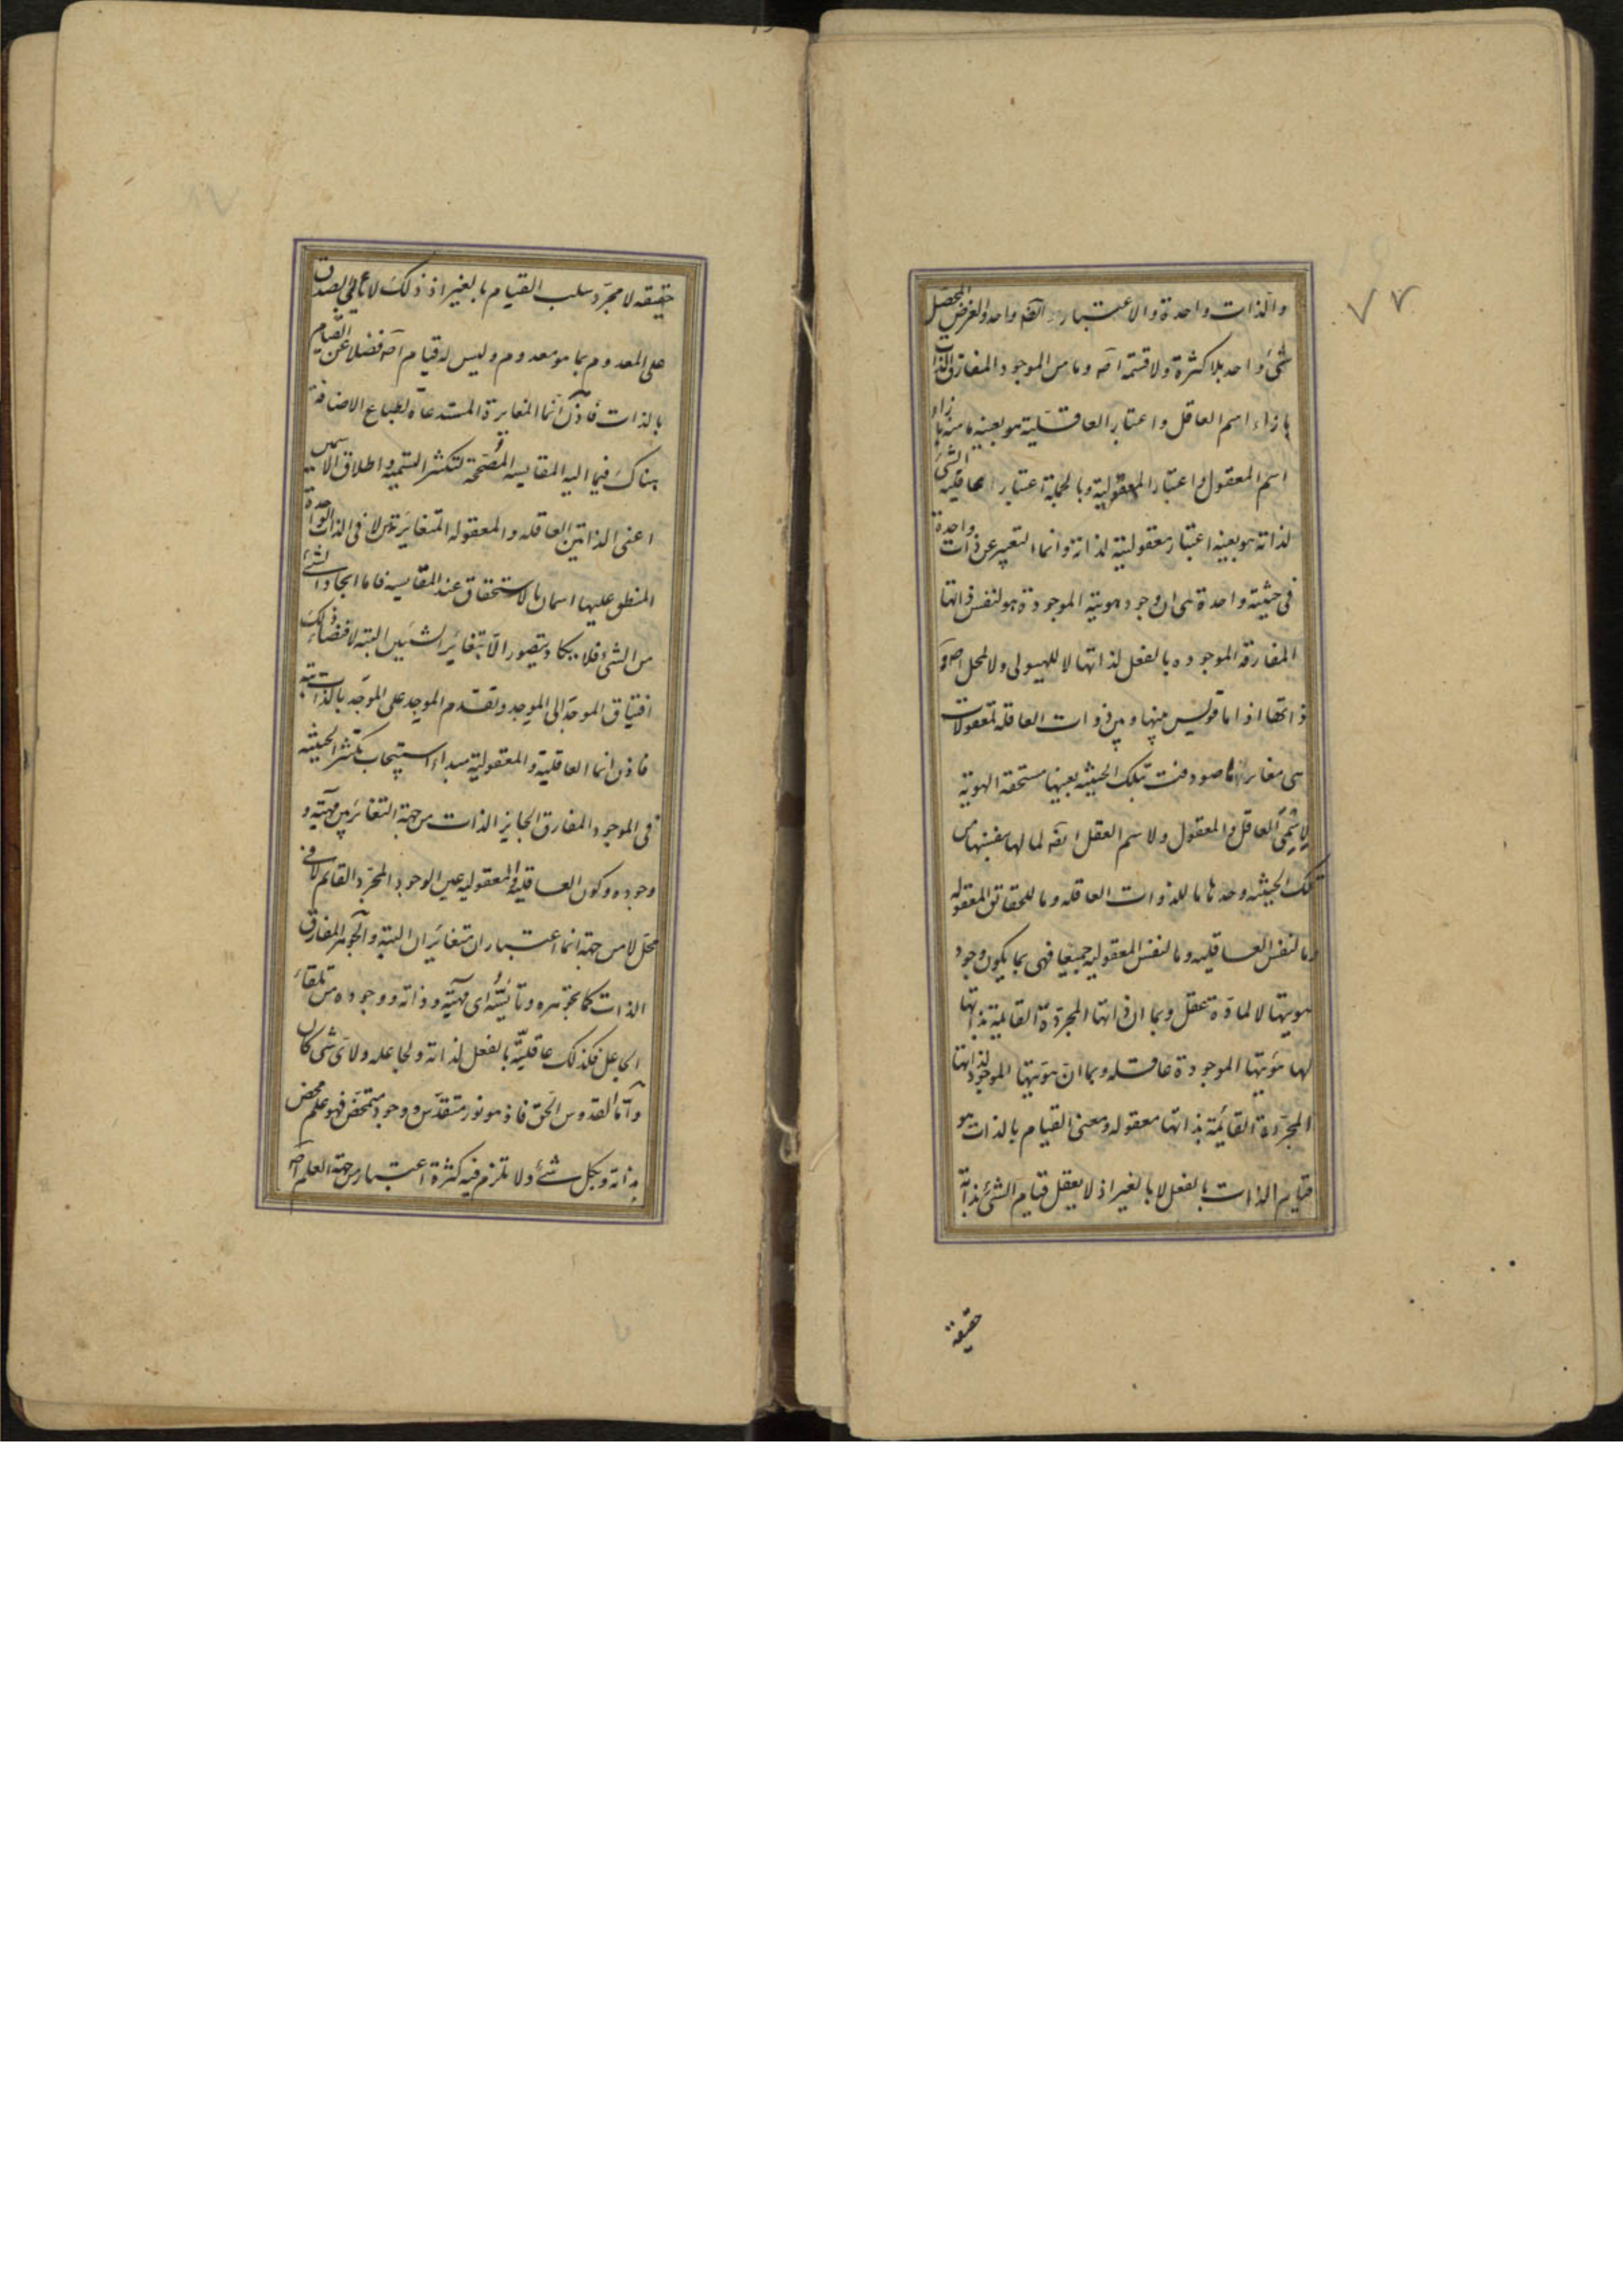 ٧٧
والذات واحدة والاعتبار ايضا واحد والغرض المحصل
شئ واحد بلا كثرة ولا قسمة اصه وما من الموجود المفارق الذات
بازاء اسم العاقل واعتبار العاقلية هو بعينه ما منه بازاء
اسم المعقول واعتبار المعقولية وبالجملة اعتبار عاقلية الشئ
لذاته هو بعينه اعتبار معقوليته لذاته وانما التعبير عن ذات واحدة
فى حيثية واحدة هى ان وجود هويته الموجودة هو لنفس ذاتها
المفارقة الموجوده بالفعل لذاتها لا للهيولى ولا لمحل اصه و
ذاتها اذا ما قويس بينها وبين ذوات العاقله لمعقولات
هى مغايرتها صودفت بتلك الحيثيه بعينها مستحقة الهوية
لاسمى العاقل والمعقول ولاسم العقل ايضه لما لها بنفسها من
تلك الحيثيه وحدها ما للذوات العاقله وما للحقائق المعقوله
وما لنفس العاقليه وما لنفس المعقوليه جميعا فهى بما يكون وجود
هويتها لا لمادة عقل وبما ان ذاتها المجردة القائمة بذاتها
لها هويتها الموجودة عاقله وبما ان هويتها الموجود لذاتها
المجردة القائمة بذاتها معقوله ومعنى القيام بالذات هو
قيام الذات بالفعل لا بالغير اذ لا يعقل قيام الشئ بذاته
حقيقة
حقيقه لا مجرد سلب القيام بالغير اذ ذلك لا يأبى الصدق
على المعدوم بما هو معدوم وليس له قيام اصه فضلا عن القيام
بالذات فاذن انما المغايرة المستدعاة لطباع الاضافة
هناك فيما اليه المقايسه المصححة لتكثر التسميه واطلاق الاسمين
اعنى الذاتين العاقله والمعقوله المتغايرتين لا فى الذات الواحدة
المنطلق عليها اسمان بالاستحقاق عند المقايسه فاما ايجاد الشئ
من الشئ فلا يكاد يتصور الا بتغاير الشيئين البته لاقتضاء ذلك
افتياق الموجد الى الموجد وتقدم الموجد على الموجد بالذات البتة
فاذن انما العاقلية والمعقولية مبداء استيجاب تكثر الحيثيه
فى الموجود المفارق الجايز الذات من جهة التغاير بين مهيته و
وجوده وكون العاقلية والمعقوليه عين الوجود المجرد القائم لا فى
محل لا من جهة انهما اعتباران متغايران البتة والجوهر المفارق
الذات كما تجوهره وتأيسه اى مهيته وذاته ووجوده من تلقاء
الجاعل فكذلك عاقليته بالفعل لذاته ولجاعله ولاى شى كان
واما القدوس الحق فاذ هو نور متقدس ووجود متمحض فهو علم محض
بذاته وبكل شئ ولا تلزم فيه كثرة اعتبار من جهة العلم اصه